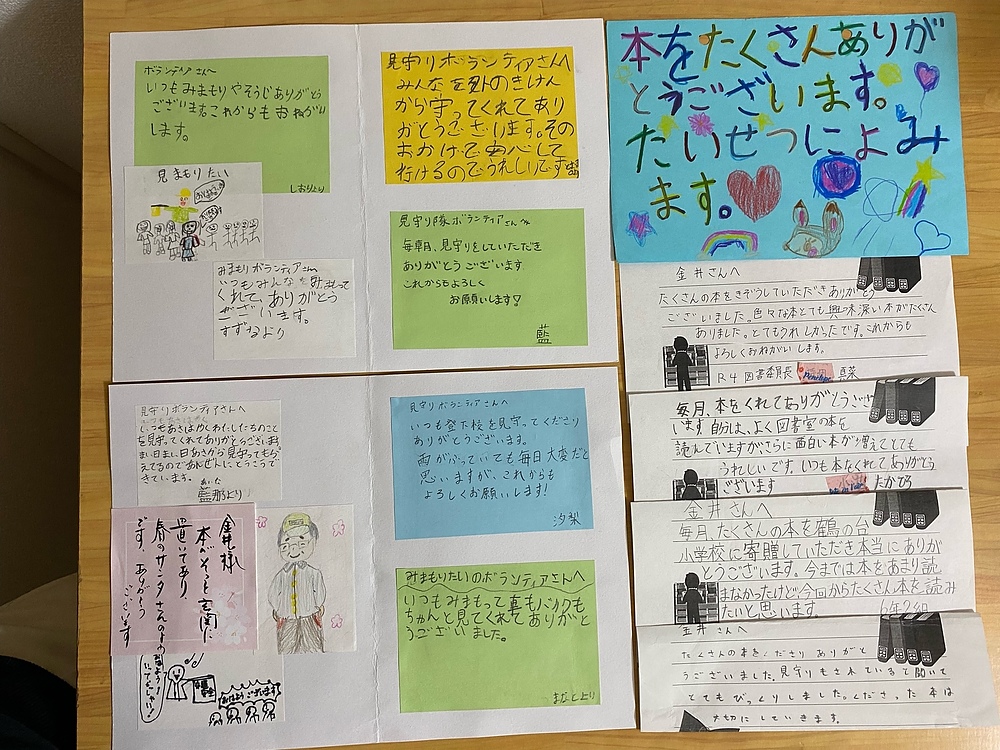 ボランティアさんへ
いつもみまもりやそうじありがとう
ございます。これからもおねがい
します。
しおりより
見まもりたい
みまもりボランティアさんへ
いつもみんなをみまもって
くれて、ありがとう
ございます。
すずねより
見守りボランティアさんへ
みんなを外のきけん
から守ってくれてあり
がとうございます。その
おかげで安心して
行けるのでうれしいです
見守り隊ボランティアさんへ
毎朝、見守りをしていただき
ありがとうございます
これからもよろしく
お願いします!
藍
本をたくさんありが
とうございます。
たいせつによみ
ます。
金井さんへ
たくさんの本をきぞうしていただきありがとう
ございました。色々な本とても興味深い本がたくさん
ありました。とてもうれしかったです。これからも
よろしくおねがいします。
R4 図書委員長
真菜
毎月、本をくれてありがとうござい
ます 自分は、よく図書室の本を
読んでいますが、さらに面白い本が増えてとても
うれしいです。いつも本をくれてありがとう
ございます
たかひろ
金井さんへ
毎月、たくさんの本を鶴の台
小学校に寄贈していただき本当にありが
とうございます。今までは本をあまり読
まなかったけど今回からたくさん本を読み
たいと思います。
6年2組
金井さんへ
たくさんの本をくださりありがと
うございました。見守りもされていると聞いて
とてもびっくりしました。くださった本は
大切にしていきます。
見守りボランティアさんへ
いつもあさはやくわたしたちのこと
を見守ってくれてありがとうございます
まい日まい日あさから見守ってもら
えてるのであんぜんにとうこうで
きています。
あいな
藍那より
見守りボランティアさんへ
いつも登下校を見守ってくださり
ありがとうございます。
雨がふっていても毎日大変だと
思いますが、これからも
よろしくお願いします!
汐梨
金井様
本がそっと玄関に
置いてあり、
春のサンタさんのよう
です。ありがとう
ございます
おはようございます
みまもりたいのボランティアさんへ
いつもみまもって
ちゃんと見てくれてありがと
うございました。
まなとより